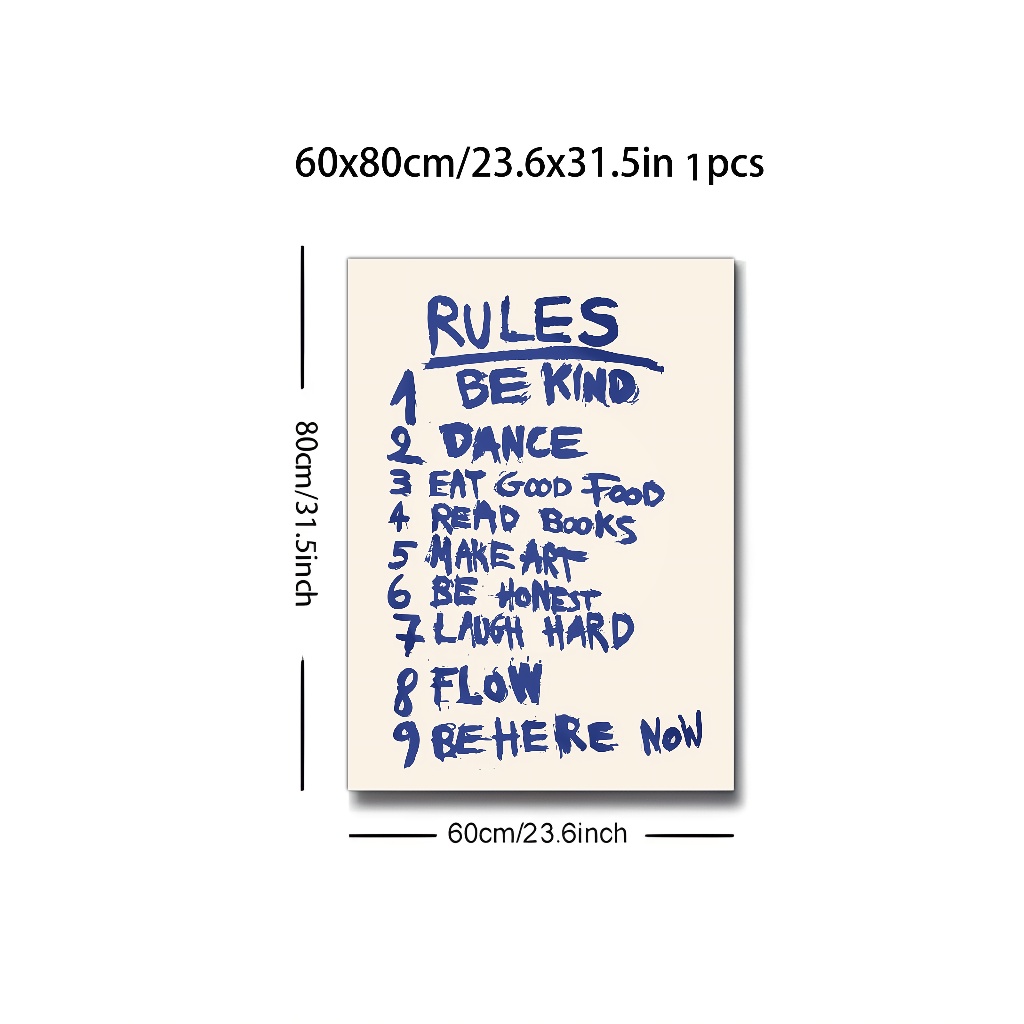 60x80cm/23.6x31.5in 1pcs
RULES
1 BE KIND
2 DANCE
3 EAT GOOD FOOD
4 READ BOOKS
5 MAKE ART
6 BE HONEST
7 LAUGH HARD
8 FLOW
9 BE HERE NOW
80cm/31.5inch
60cm/23.6inch